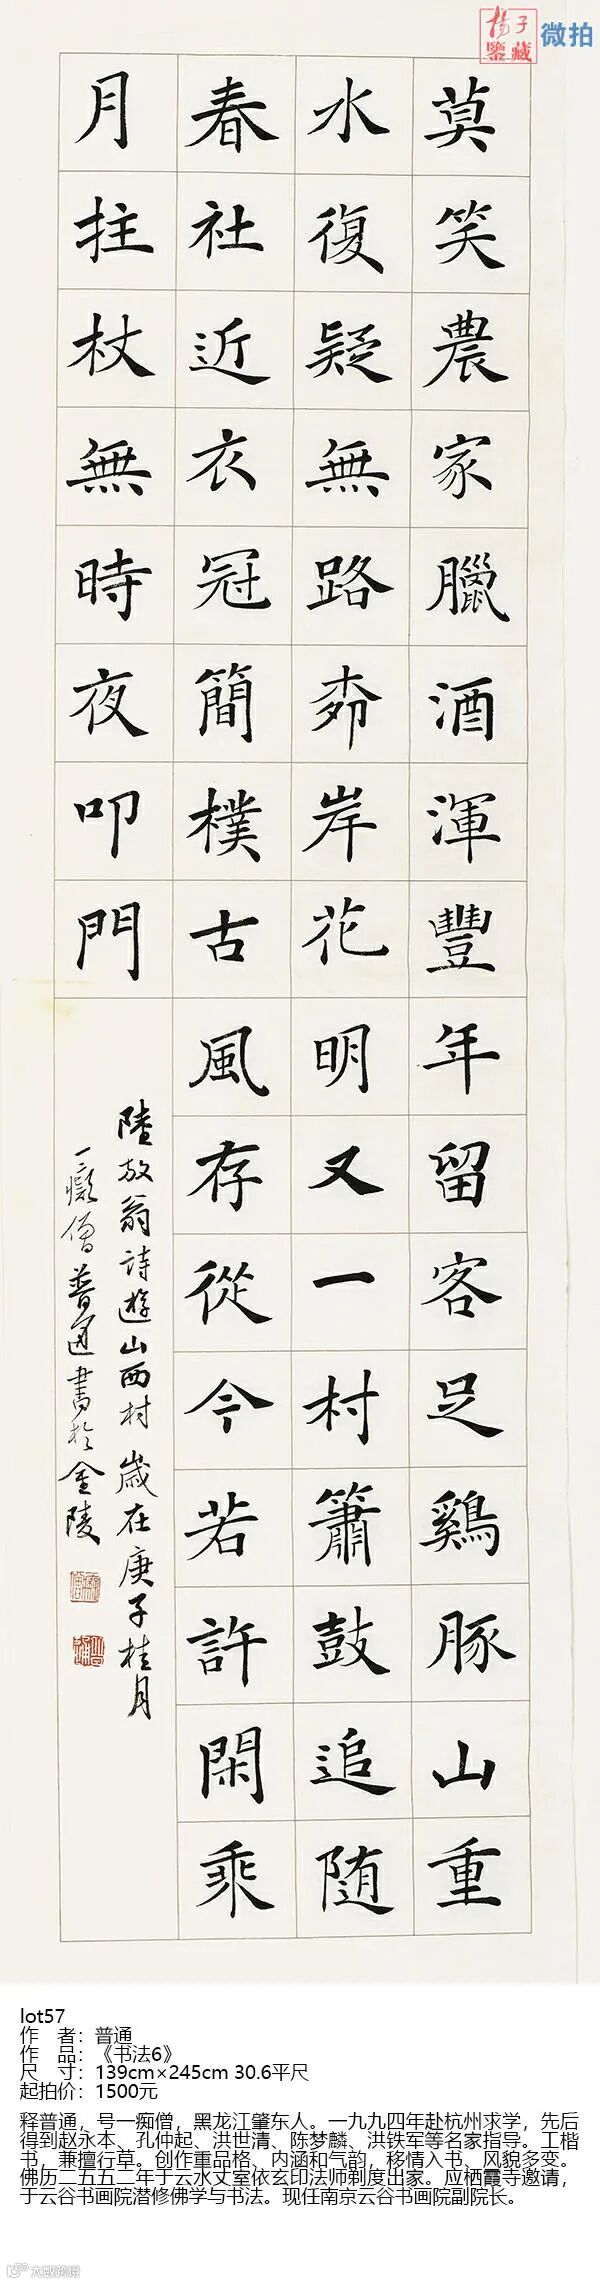 揚子
鑒藏
微拍
莫笑農家臘酒渾豐年留客足鷄豚山重
水復疑無路桺岸花明又一村簫鼓追随
春社近衣冠簡樸古風存從今若許閑乘
月拄杖無時夜叩門
陸放翁詩遊山西村 歲在庚子桂月
一癡僧普通書於金陵
lot57
作 者：普通
作 品：《书法6》
尺 寸：139cm×245cm 30.6平尺
起拍价：1500元
释普通，号一痴僧，黑龙江肇东人。一九九四年赴杭州求学，先后
得到赵永本、孔仲起、洪世清、陈梦麟、洪铁军等名家指导。工楷
书，兼擅行草。创作重品格、内涵和气韵，移情入书、风貌多变。
佛历二五五二年于云水丈室依玄印法师剃度出家。应栖霞寺邀请，
于云谷书画院潜修佛学与书法。现任南京云谷书画院副院长。
大歐跨境